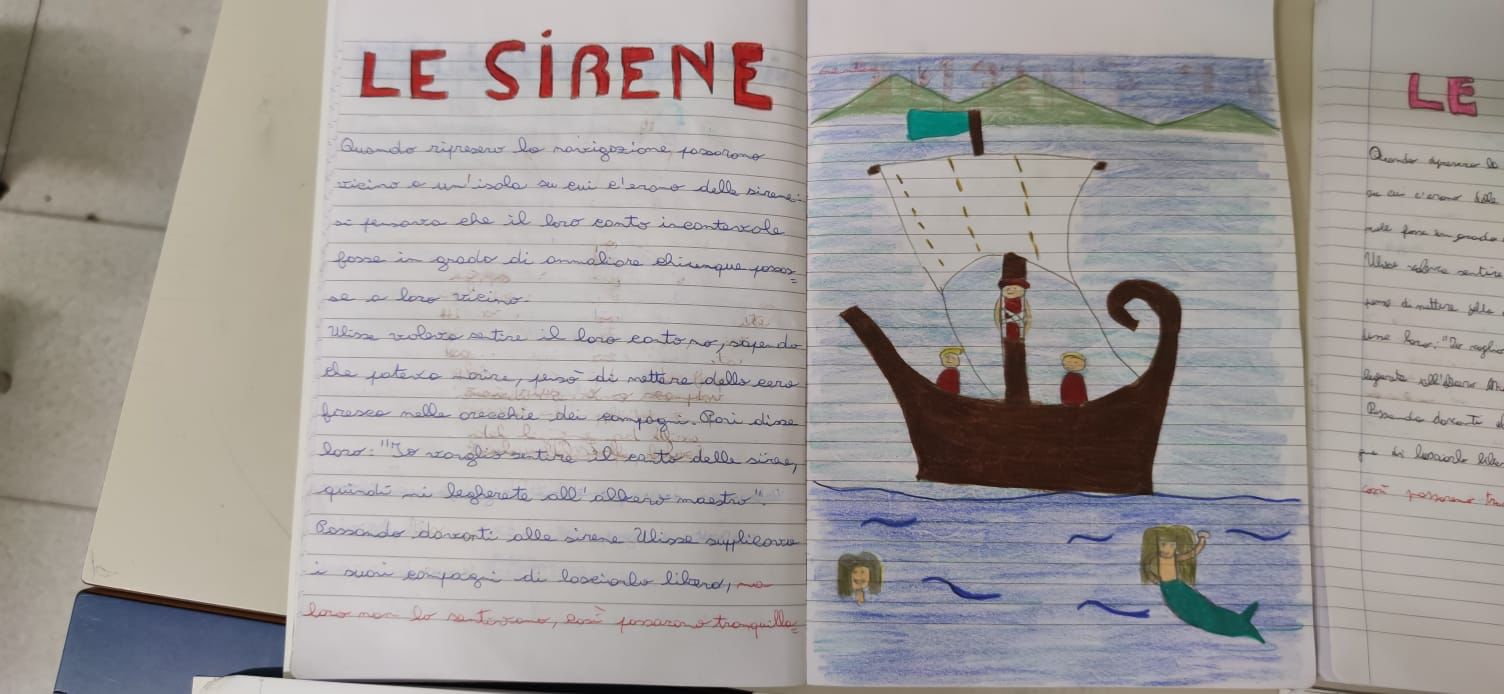 LE SIRENE
Quando ripresero la navigazione passarono
vicino a un'isola su cui c'erano delle sirene:
si pensava che il loro canto incantevole
fosse in grado di ammaliare chiunque passas=
se a loro vicino.
Ulisse voleva sentire il loro canto ma, sapendo
che poteva morire, pensò di mettere della cera
fresca nelle orecchie dei compagni. Poi disse
loro: "Io voglio sentire il canto delle sirene,
quindi mi legherete all'albero maestro".
Passando davanti alle sirene Ulisse supplicava
i suoi compagni di lasciarlo libero, ma
loro non lo sentivano, così passarono tranquilla=
LE
Quando ripresero la
su cui c'erano delle
Ulisse voleva sentire
pensò di mettere della
disse loro: "Io voglio
Passando davanti
di lasciarlo
così passarono